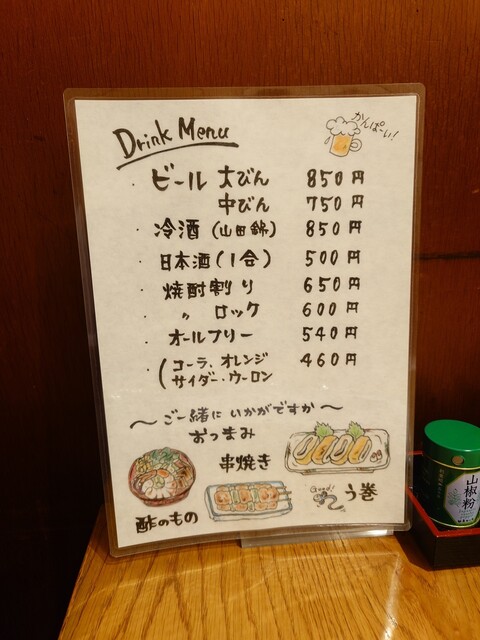 Drink Menu
かんぱーい!
・ビール 大びん 850円
中びん 750円
・冷酒(山田錦) 850円
・日本酒(1合) 500円
・焼酎割り 650円
〃 ロック 600円
・オールフリー 540円
・(コーラ、オレンジ 460円
サイダー・ウーロン
〜ご一緒にいかがですか〜
おつまみ
串焼き
Good!
う巻
酢のもの
山椒粉